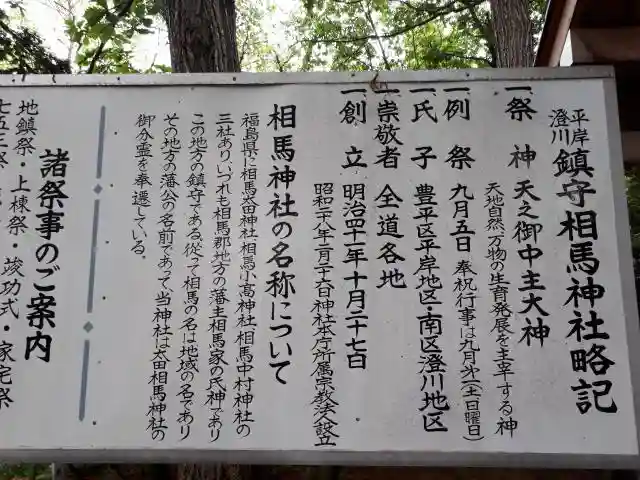 平岸
澄川
鎮守相馬神社略記
一祭神 天之御中主大神
天地自然、万物の生育発展を主宰する神
一例祭 九月五日 奉祝行事は九月第一(土日曜日)
一氏子 豊平区平岸地区・南区澄川地区
一崇敬者 全道各地
一創立 明治四十一年十月二十七日
昭和二十八年二月二十六日神社本庁所属宗教法人設立
相馬神社の名称について
福島県に相馬太田神社、相馬小高神社、相馬中村神社の
三社あり、いづれも相馬郡地方の藩主相馬家の氏神であり
この地方の鎮守である。従って相馬の名は地域の名であり
その地方の藩公の名前であって、当神社は太田相馬神社の
御分霊を奉遷している。
諸祭事のご案内
地鎮祭・上棟祭・竣功式・家宅祭
七五三祭